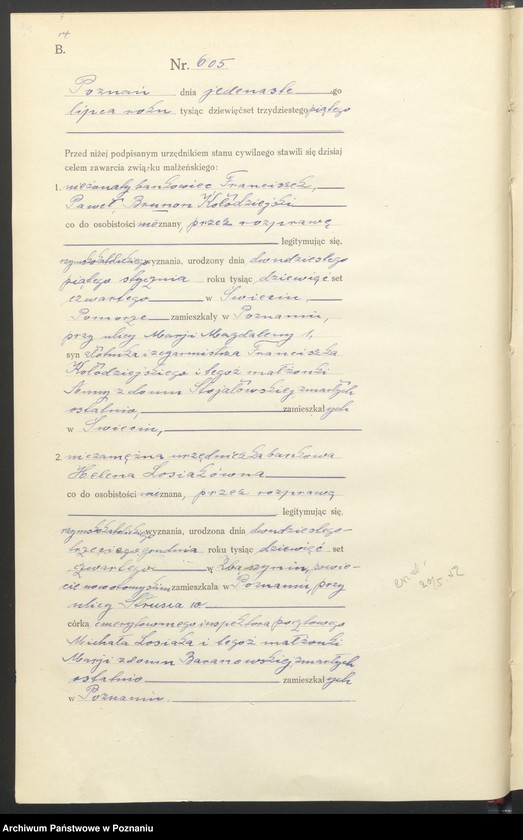 B.
Nr. 605
Poznań dnia jedenaste go
lipca roku tysiąc dziewięćset trzydziestego piątego
Przed niżej podpisanym urzędnikiem stanu cywilnego stawili się dzisiaj
celem zawarcia związku małżeńskiego:
1. nieżonaty bankowiec Franciszek,
Paweł, Brunon Kołodziejski
co do osobistości nieznany, przez rozprawę
legitymując się,
rzymskokatolickiego wyznania, urodzony dnia dwudziestego
piątego stycznia roku tysiąc dziewięć set
czwartego w Świeciu,
Pomorze zamieszkały w Poznaniu,
przy ulicy Marji Magdaleny 1,
syn złotnika i zegarmistrza Franciszka
Kołodziejskiego i tegoż małżonki
Anny z domu Stojałowskiej zmarłych
ostatnio, zamieszkał ych
w Świeciu,
2. niezamężna urzędniczka bankowa
Helena Łosiakówna
co do osobistości nieznana, przez rozprawę
legitymując się,
rzymskokatolickiego wyznania, urodzona dnia dwudziestego
trzeciego grudnia roku tysiąc dziewięć set
czwartego w Zbąszyniu, powie-
cie nowotomyskim zamieszkała w Poznaniu, przy
ulicy Strusia 10
córka emerytowanego inspektora pocztowego
Michała Łosiaka i tegoż małżonki
Marji z domu Baranowskiej, zmarłych
ostatnio zamieszkał ych
w Poznaniu.
20/5 52
Archiwum Państwowe w Poznaniu